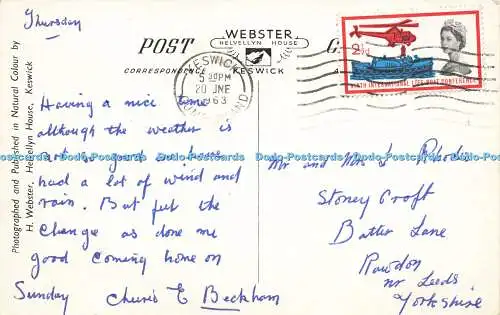 Thursday
POST
CORRESPONDENCE
WEBSTER
HELVELLYN HOUSE
KESWICK
KESWICK
30PM
20 JNE
1963
2½d
NINTH INTERNATIONAL LIFE-BOAT CONFERENCE
Photographed and Published in Natural Colour by
H. Webster, Helvellyn House, Keswick
Having a nice time
although the weather is
not so good we have
had a lot of wind and
rain. But felt the
change as done me
good coming home on
Sunday Chris E Beckham
Mr and Mrs L Rhodes
Stoney Croft
Batter Lane
Rawdon
nr Leeds
Yorkshire
Dodo-Postcards Dodo-Postcards Dodo-Postcards Dodo-Postcards